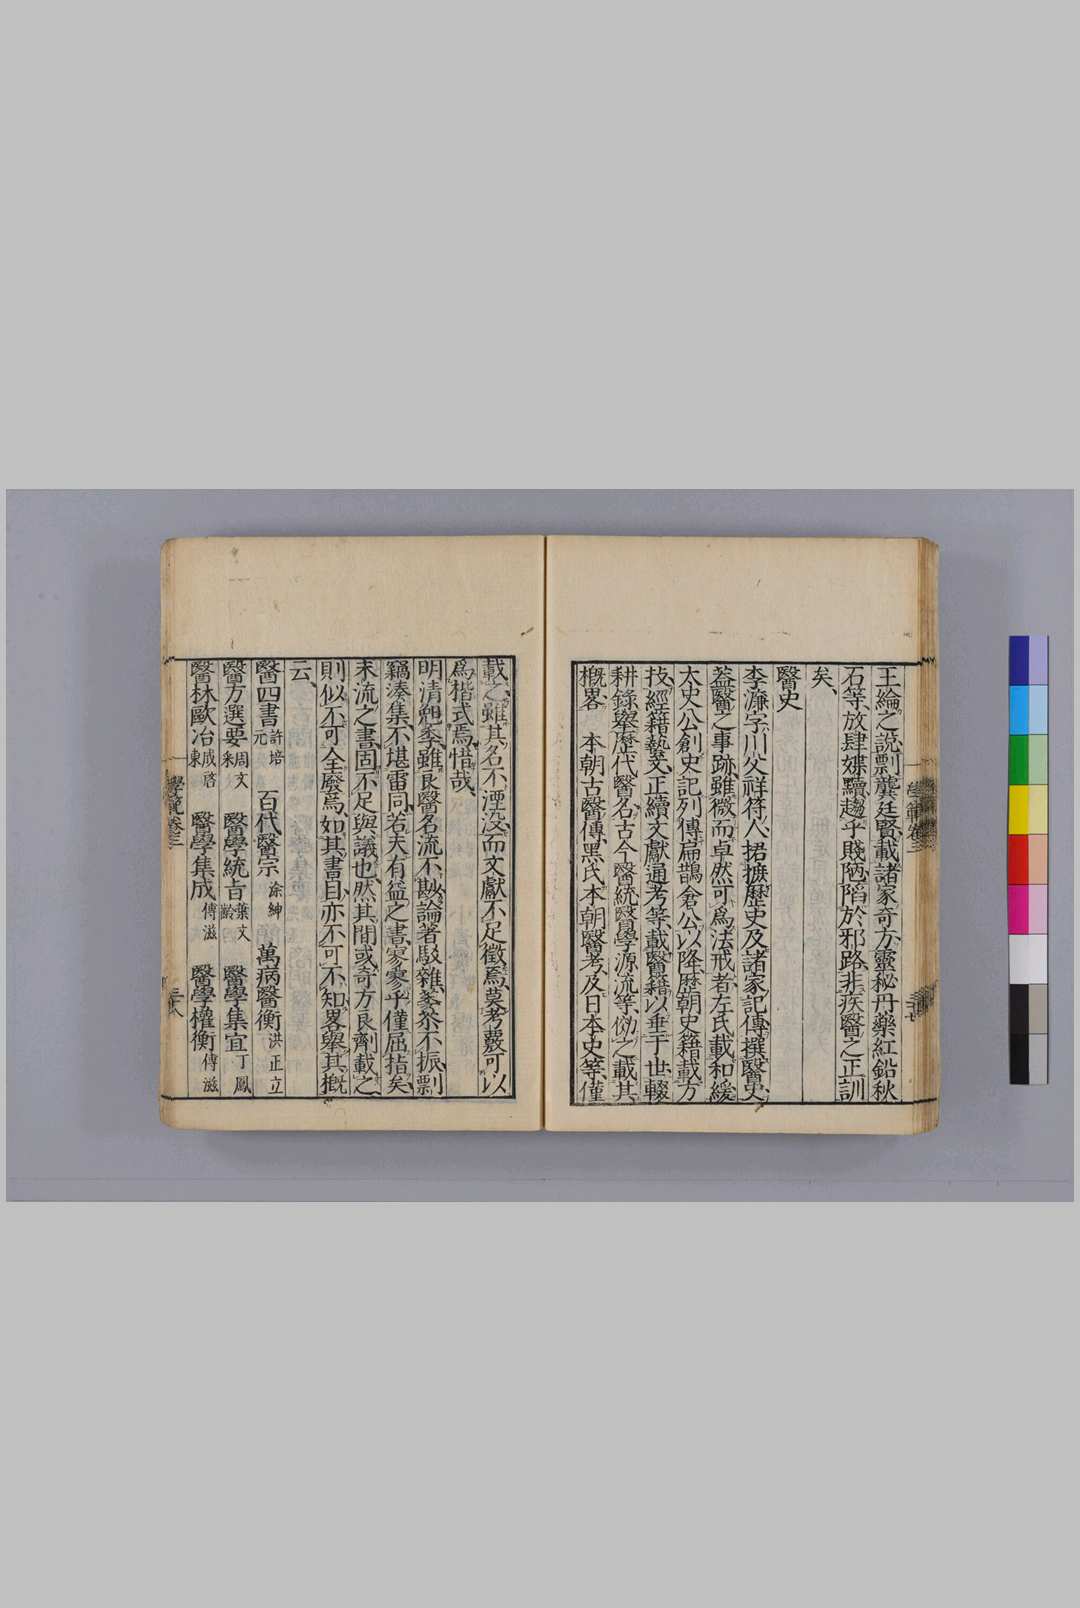 王綸之說剽龔廷賢載諸家奇方靈秘丹藥紅鉛秋
石等放肆媟黷趨乎賤陋陷於邪路非疾醫之正訓
矣
醫史
李濂字川父祥符人捃摭歷史及諸家記傳撰醫史
蓋醫之事跡雖微而卓然可爲法戒者左氏載和緩
太史公創史記列傳扁鵲倉公以降歷朝史籍載方
技經籍藝文正續文獻通考等載醫籍以垂于世輟
耕錄舉歷代醫名古今醫統醫學源流等傚之載其
概畧 本朝古醫傳黑氏本朝醫考及日本史等僅
學範卷三
載之雖其名不湮沒而文獻不足徵焉莫考覈可以
爲楷式焉惜哉
明淸兩季雖良醫名流不尠論著駁雜萎苶不振剽
竊湊集不堪雷同若夫有益之書寥寥乎僅屈指矣
末流之書固不足與議也然其間或奇方良劑載之
則似不可全廢焉如其書目亦不可不知畧舉其概
云
醫四書許培元 百代醫宗涂紳 萬病醫衡洪正立
醫方選要周文采 醫學統旨葉文齡 醫學集宜丁鳳
醫林歐冶咸啓東 醫學集成傅滋 醫學權衡傅滋
學範卷三